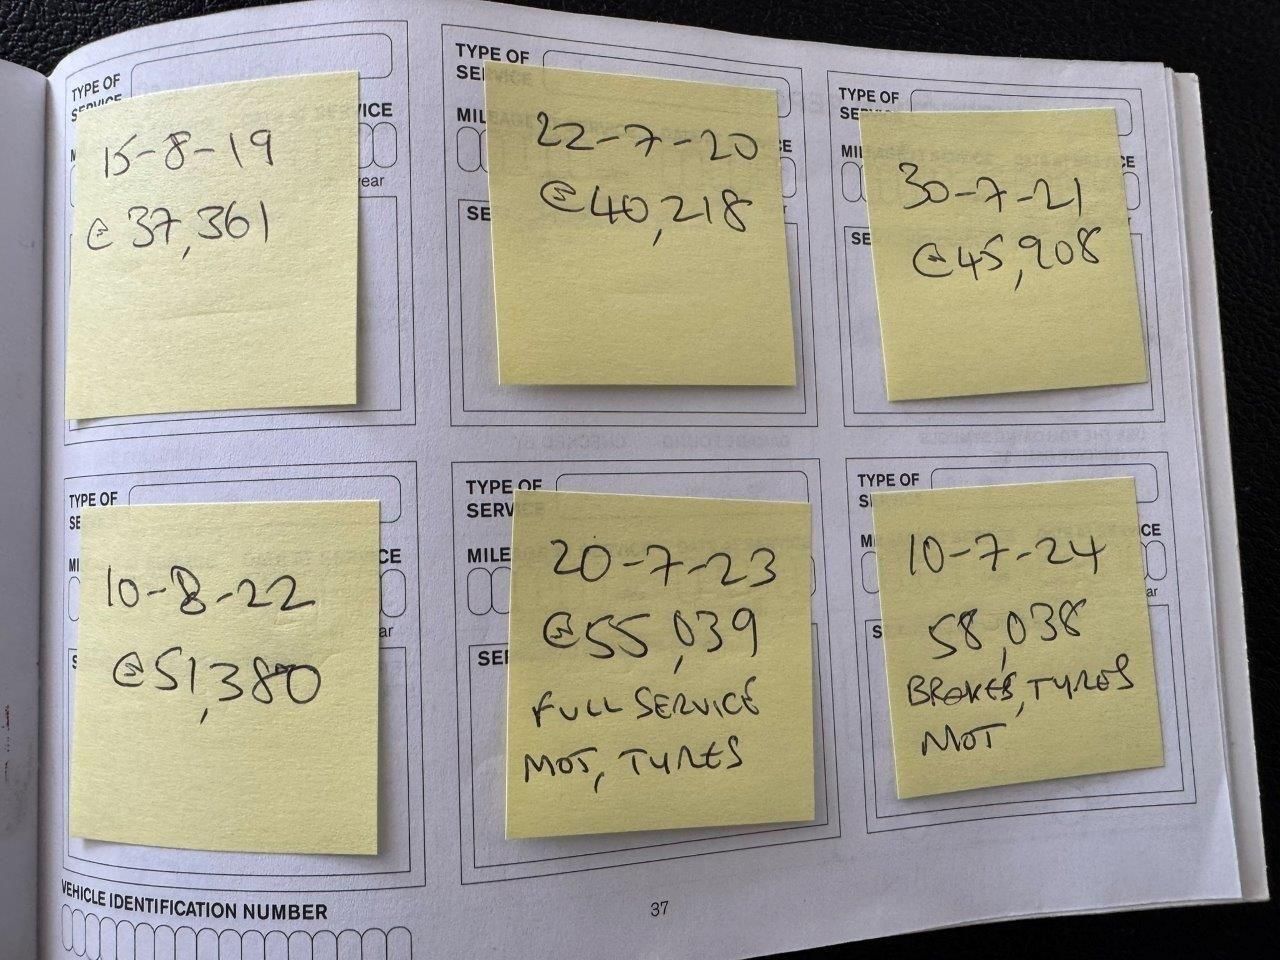 TYPE OF
SERVICE
VICE
year
15-8-19
@ 37,361
TYPE OF
SERVICE
MILEAGE
CE
SE
22-7-20
@ 40,218
TYPE OF
SERVICE
MIL
CE
SE
30-7-21
@ 45,908
TYPE OF
SE
MI
CE
ar
S
10-8-22
@ 51,380
TYPE OF
SERVICE
MILE
SER
20-7-23
@ 55,039
FULL SERVICE
MOT, TYRES
TYPE OF
SE
M
CE
ar
S
10-7-24
58,038
BRAKES, TYRES
MOT
VEHICLE IDENTIFICATION NUMBER
37